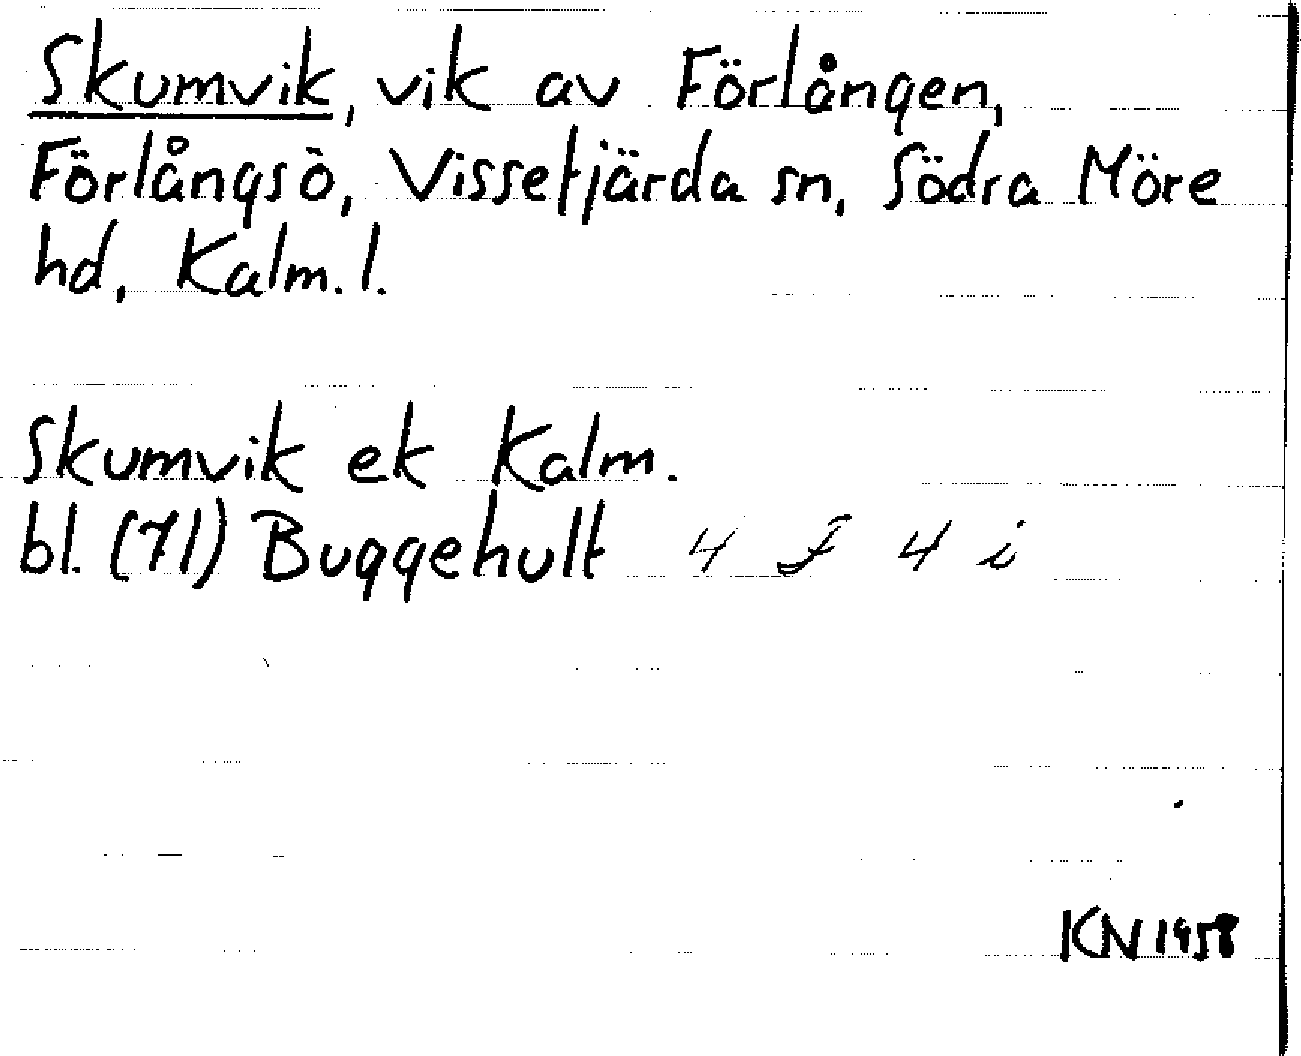 Skumvik, vik av Förlången,
Förlångsö, Vissefjärda sn, Södra Möre
hd, Kalm. l.
Skumvik ek Kalm.
bl. (71) Buggehult 4 F 4 i
KN 1958